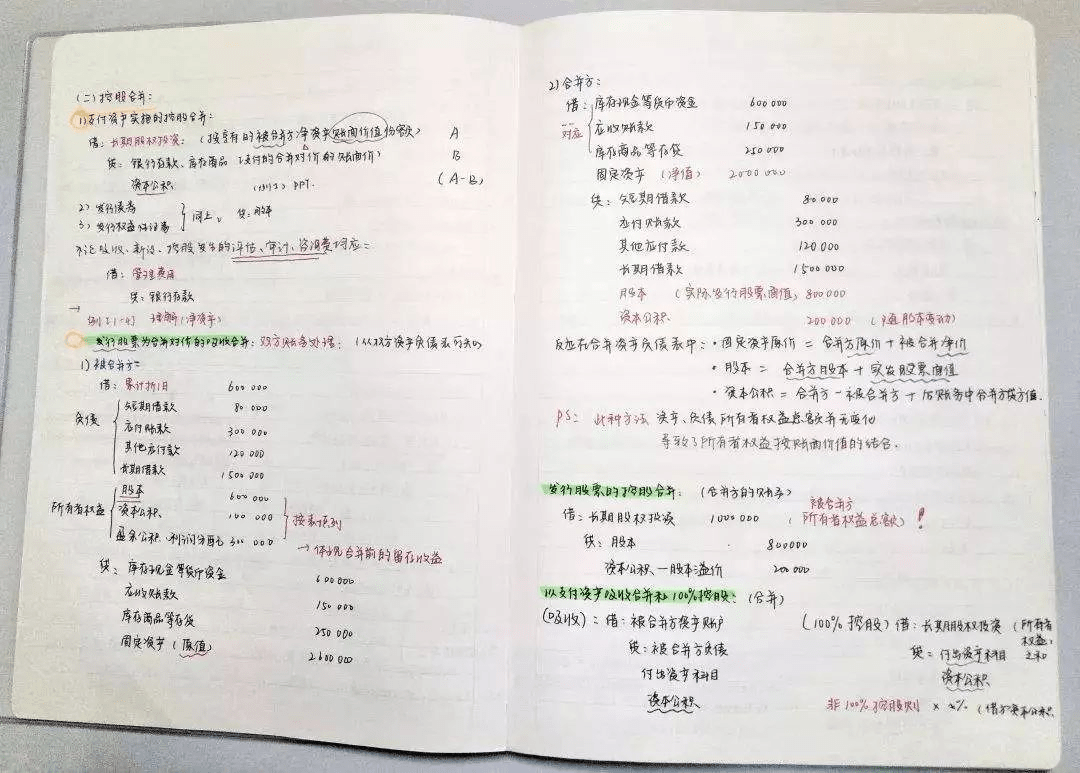 (二)控股合并:
1)支付资产实施的控股合并:
借:长期股权投资 (按享有的被合并方净资产账面价值份额) A
贷:银行存款、库存商品 (支付的合并对价的账面价) B
资本公积 PPT. (A-B)
2) 发行债券
3) 发行权益性证券 } 同上、贷:股本
不论吸收、新设、控股发生的评估、审计、咨询费均应:
借:管理费用
贷:银行存款
例[1-4] 理解(净资产)
发行股票为合并对价的吸收合并:双方账务处理:(从双方资产负债表可知)
1)被合并方:
借:累计折旧 600 000
负债
短期借款 80 000
应付账款 300 000
其他应付款 120 000
长期借款 1500 000
所有者权益
股本 600 000
资本公积 100 000
盈余公积、利润分配 300 000
→体现合并前的留存收益
贷:库存现金等货币资金 600 000
应收账款 150 000
库存商品等存货 250 000
固定资产(原值) 2600 000
2)合并方:
借:库存现金等货币资金 600 000
对应
应收账款 150 000
库存商品等存货 250 000
固定资产 (净值) 2000 000
贷:短期借款 80 000
应付账款 300 000
其他应付款 120 000
长期借款 1500 000
股本 (实际发行股票面值) 800 000
资本公积 200 000
反应在合并资产负债表中:·固定资产原价 = 合并方原价 + 被合并净价
·股本 = 合并方股本 + 实发股票面值
·资本公积 = 合并方 - 被合并方 + 后账务中合并方贷方值.
PS: 此种方法 资产、负债 所有者权益总额并无变化
导致了所有者权益按账面价值的结合.
发行股票的控股合并: (合并方的账务)
借:长期股权投资 1000 000 (被合并方所有者权益总额)!
贷:股本 800000
资本公积—股本溢价 200 000
以支付资产吸收合并和100%控股:(合并)
(吸收):借:被合并方资产账户
贷:被合并方负债
付出资产科目
资本公积
(100%控股)借:长期股权投资 (所有者权益之和)
贷:付出资产科目
资本公积
非100%控股则 × x% (借方资本公积